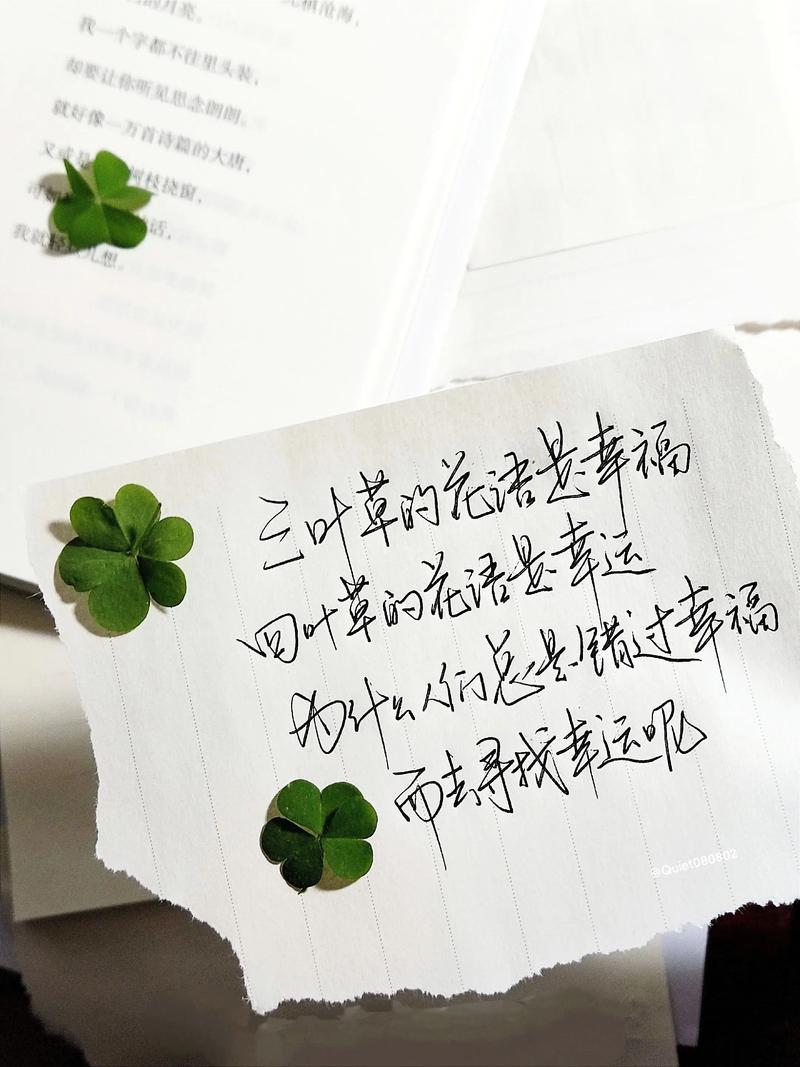 的月亮。
沧海，
我一个字都不往里头装，
却要让你听见思念朗朗。
就好像一万首诗篇的大唐，
又或是 树枝挠窗，
可如 话，
我就轻 想。
三叶草的花语是幸福
四叶草的花语是幸运
为什么人们总是错过幸福
而去寻找幸运呢
@Quiet080802